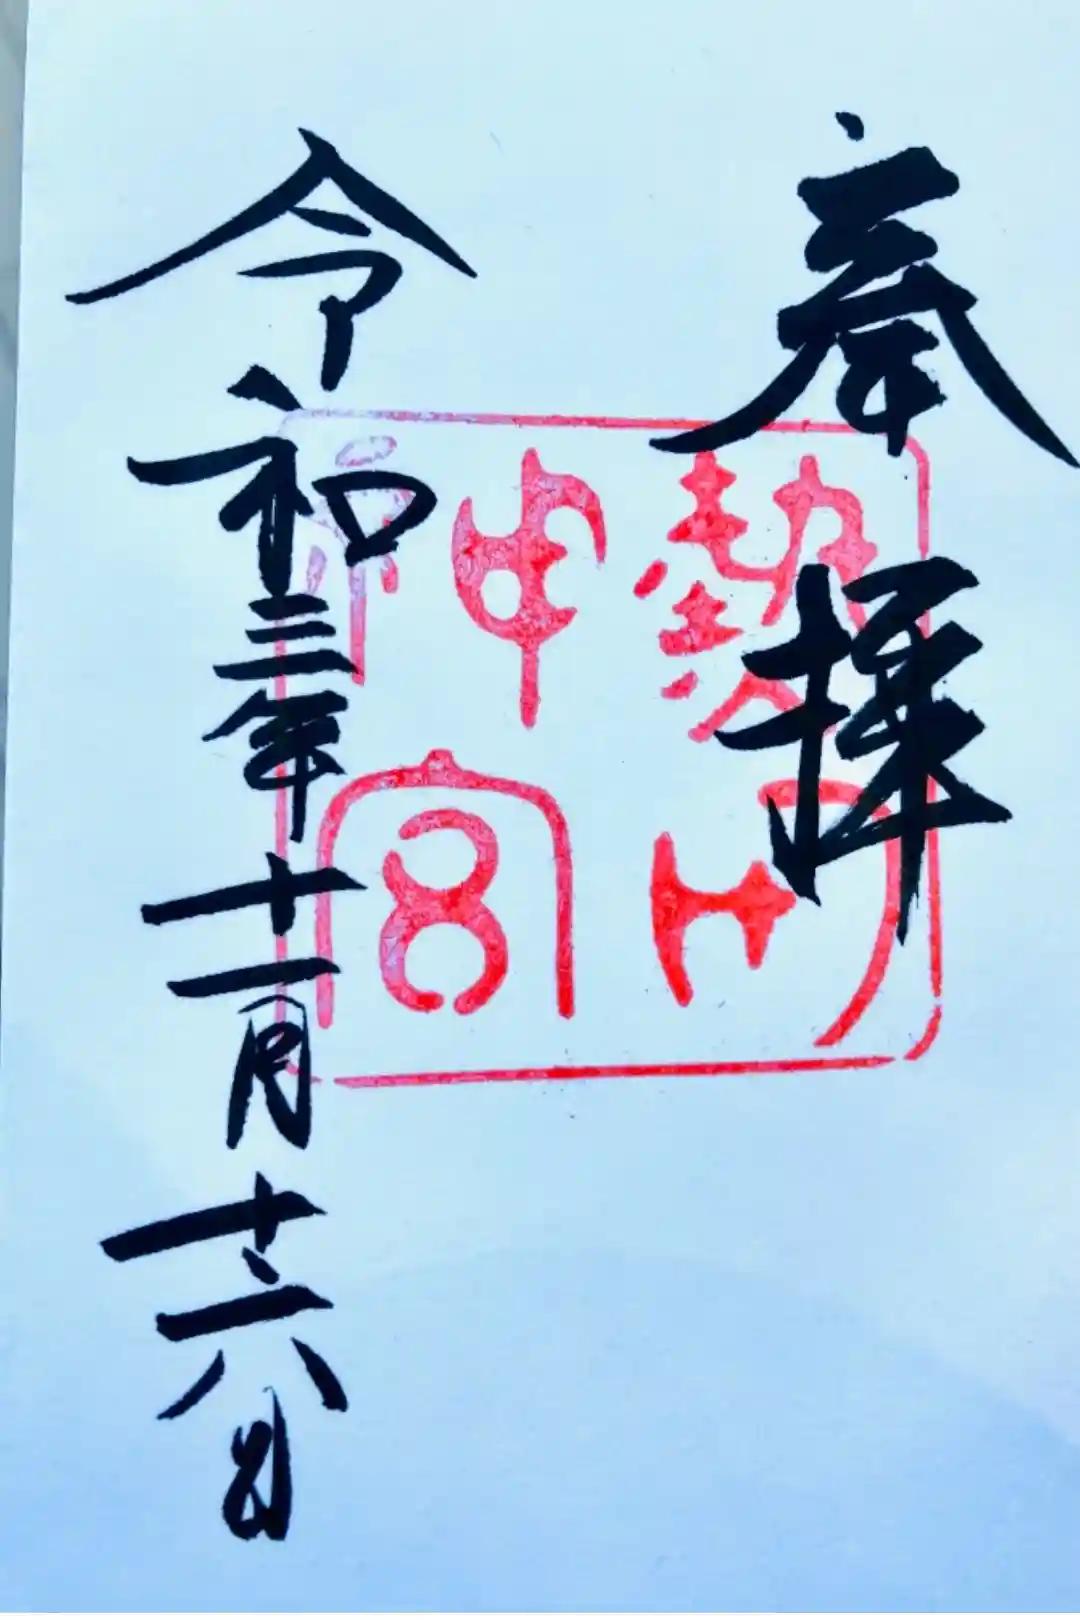 奉拝
熱田
神宮
令和三年十一月十六日